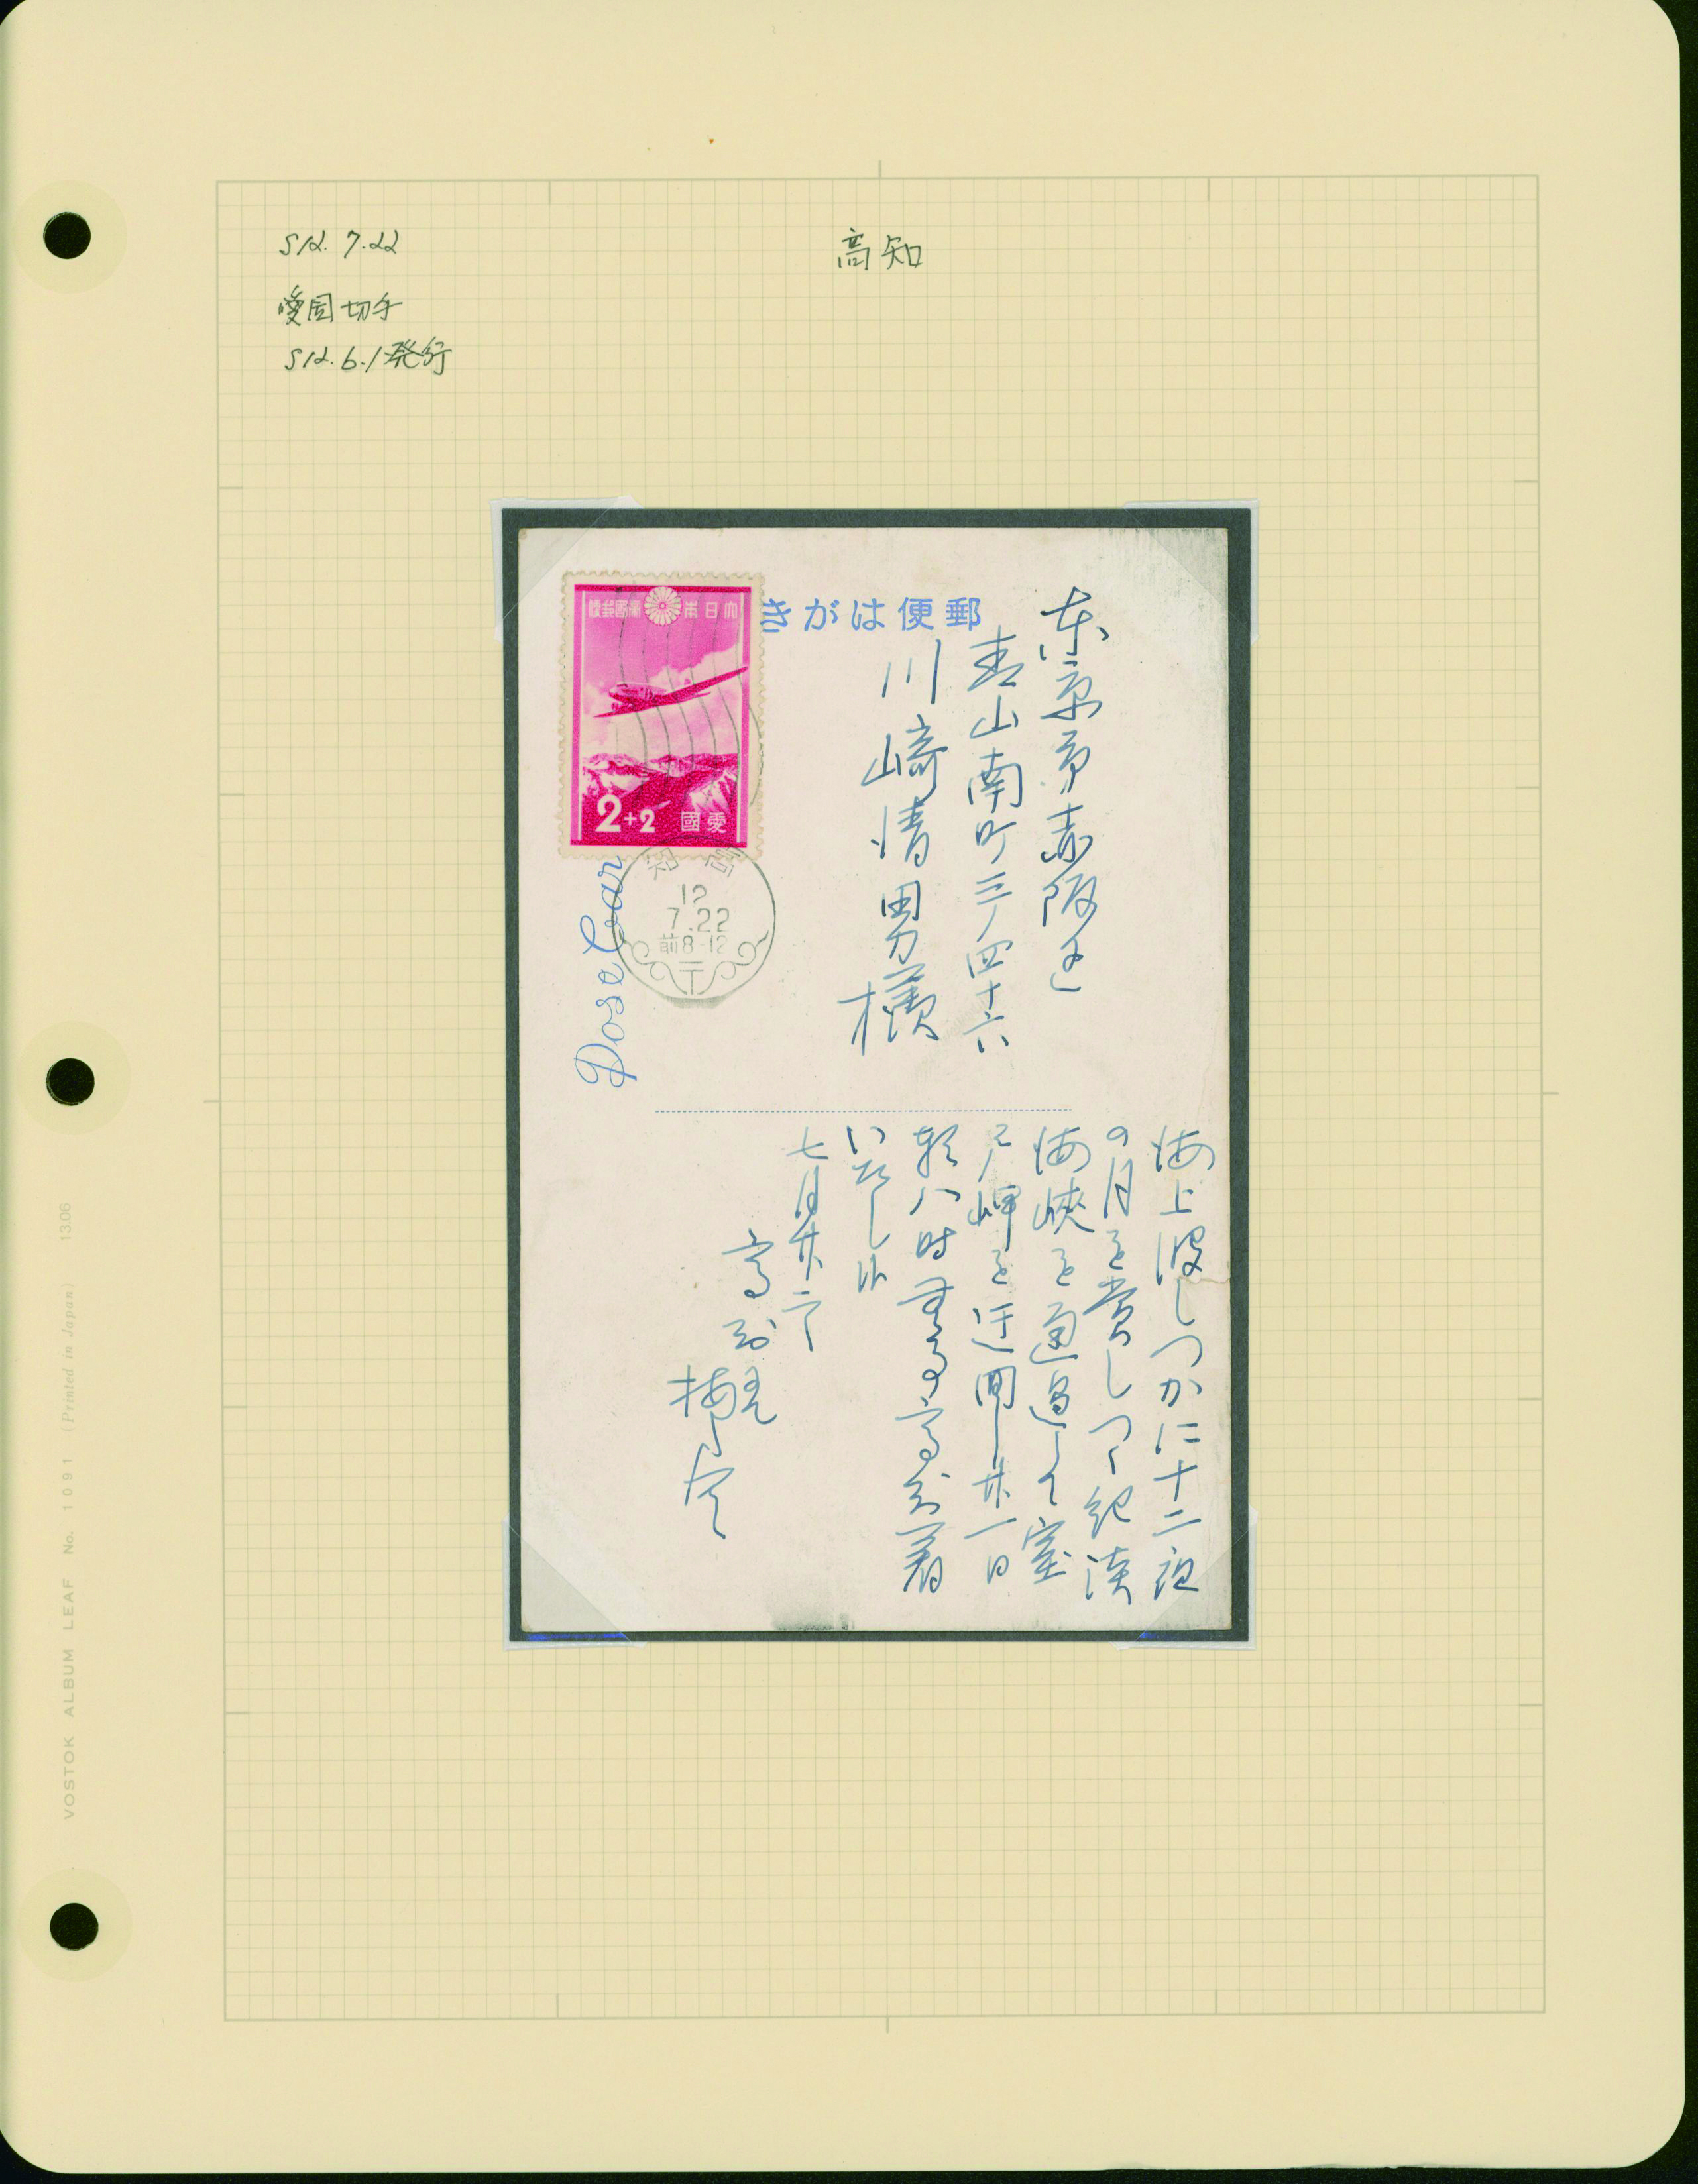 S12.7.22
愛国切手
S12.6.1発行
高知
郵便はがき
大日本帝國郵便
2+2 愛國
高知
12
7.22
前8-12
東京市赤阪区
青山南町三ノ四十六
川崎清男様
海上波しづかに十二夜
の月を賞しつゝ紀淡
海峡を通過して室
戸岬を迂回し廿一日
朝八時
高知着
いたし
七月廿二
高知
VOSTOK ALBUM LEAF No. 1091 (Printed in Japan) 13.06